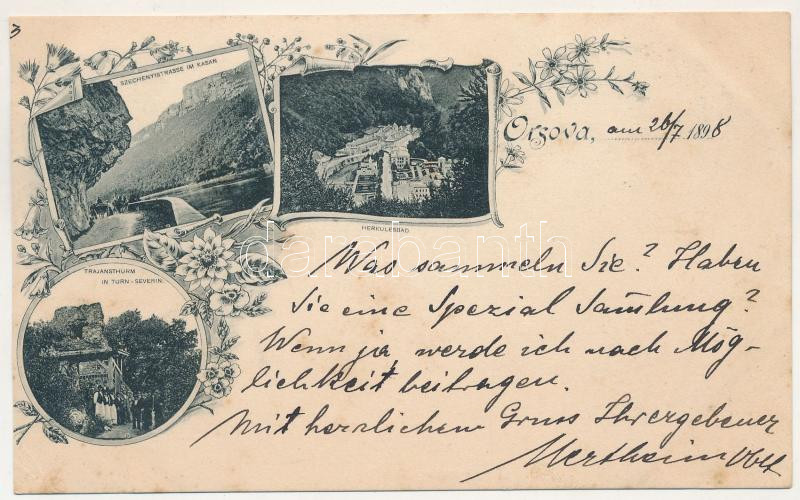 3
SZECHENYISTRASSE IM KASAN
HERKULESBAD
Orsova, am 26/7 1898
TRAJANSTHURM
IN TURN-SEVERIN.
darabanth.com
Was sammeln Sie? Haben
Sie eine Spezial Sam̄lung?
Wenn ja, werde ich nach Mög-
lichkeit beitragen.
Mit herzlichem Gruss Ihrergebener
Mertheim